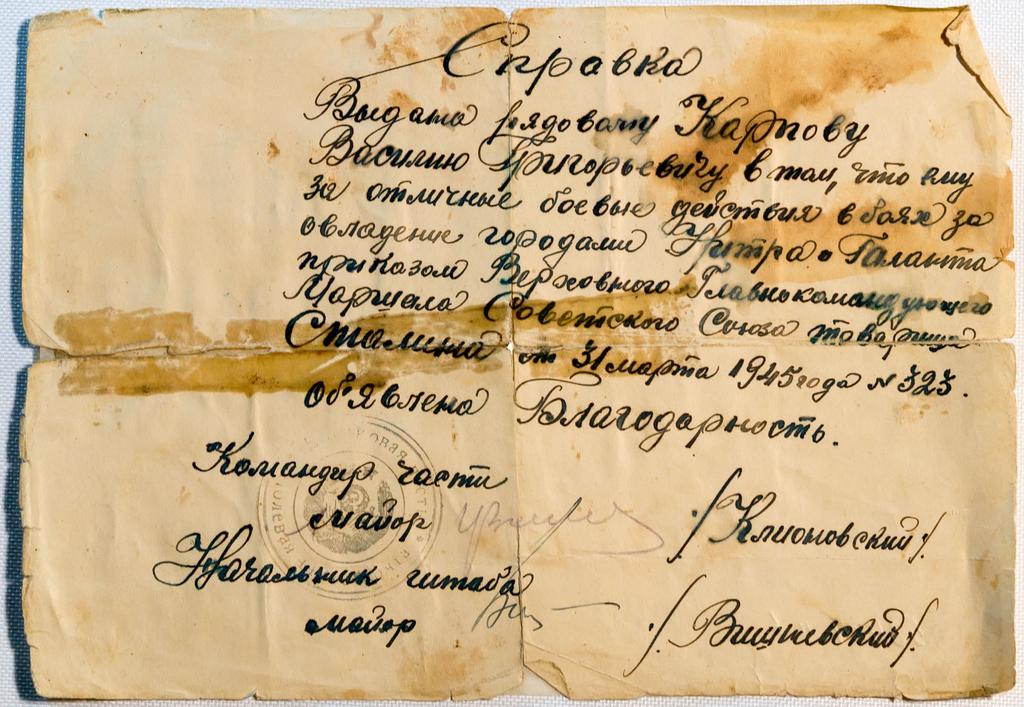 Справка
Выдана рядовому Карпову
Василию Григорьевичу в том, что ему
за отличные боевые действия в боях за
овладение городами Нитра и Галанта
приказом Верховного Главнокомандующего
Маршала Советского Союза товарища
Сталина от 31 марта 1945 года № 323.
объявлена Благодарность.
Командир части
майор /Клионовский/.
Начальник штаба
майор /Вишневский/.